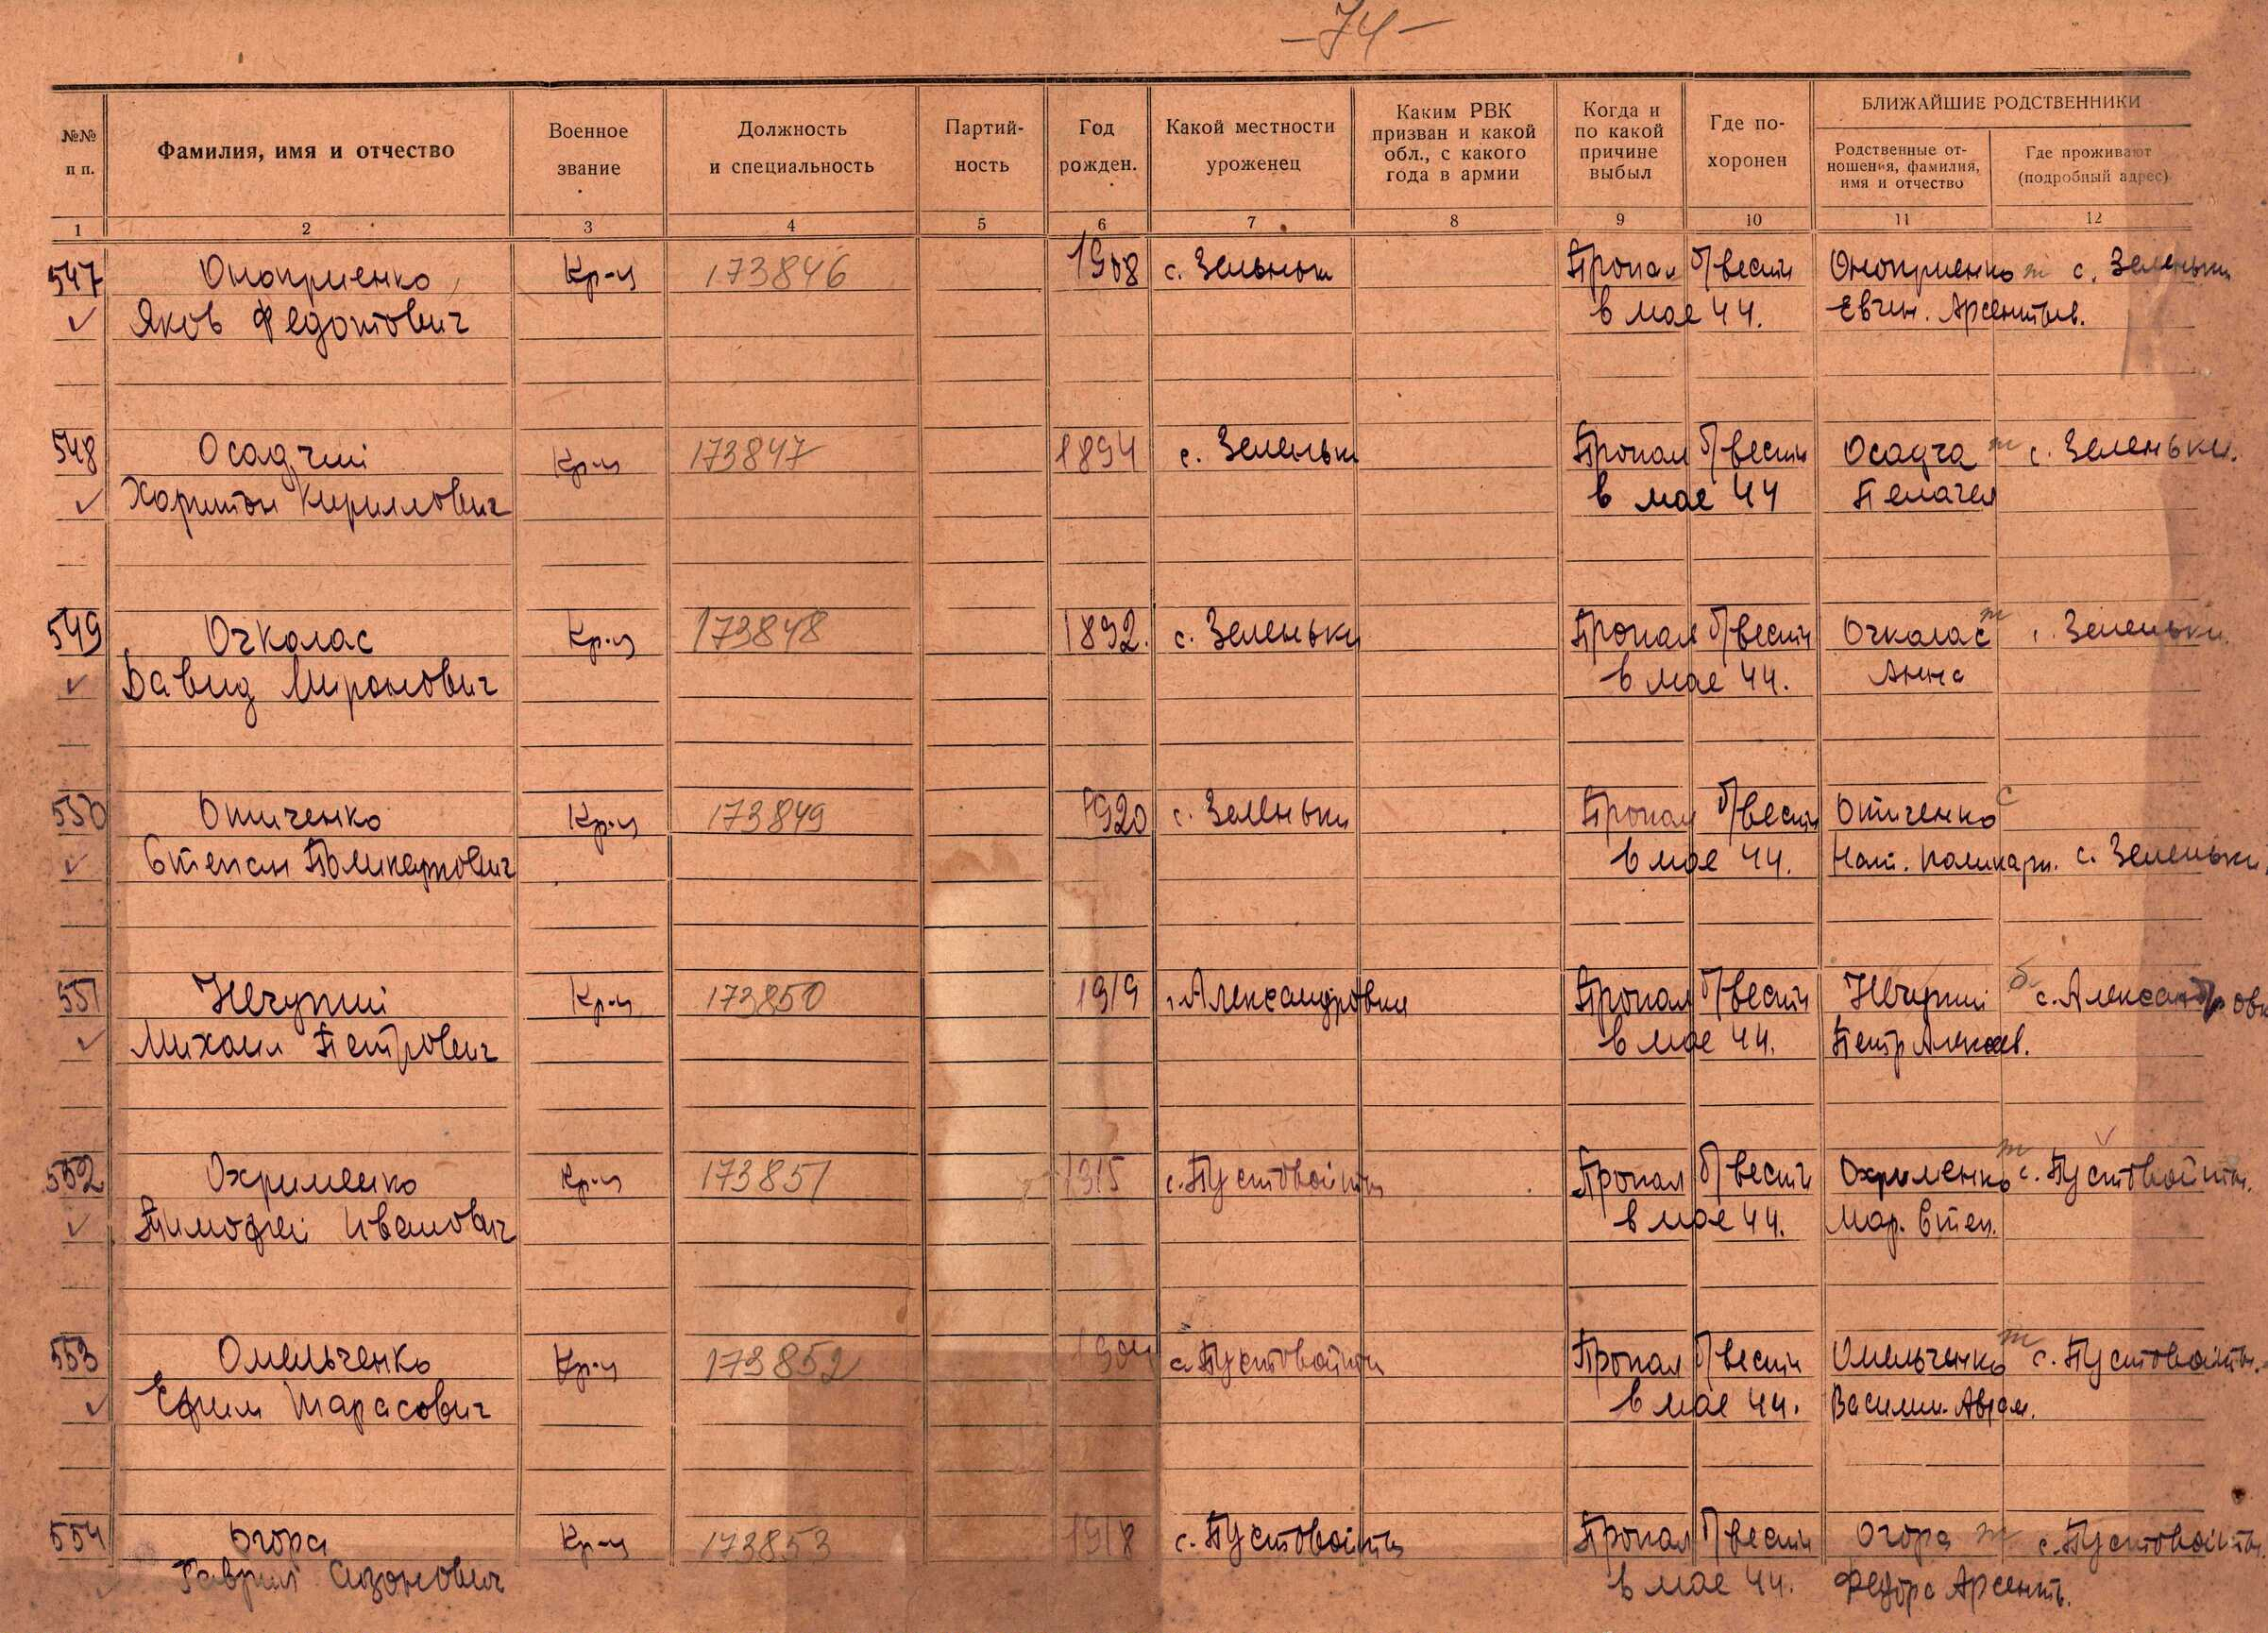 —74—
№№ п п.
Фамилия, имя и отчество
Военное звание
Должность и специальность
Партий-ность
Год рожден.
Какой местности уроженец
Каким РВК призван и какой обл., с какого года в армии
Когда и по какой причине выбыл
Где по-хоронен
БЛИЖАЙШИЕ РОДСТВЕННИКИ
Родственные от-ношения, фамилия, имя и отчество
Где проживают (подробный адрес)
1 2 3 4 5 6 7 8 9 10 11 12
547 Оноприенко Кр-ц 173846 1908 с. Зеленьки Пропал б/вести Оноприенко т с. Зеленьки
Яков Федотович в мае 44. Евген. Арсентьев.
548 Осадчий Кр-ц 173847 1894 с. Зеленьки Пропал б/вести Осадча т с. Зеленьки.
Харитон Кириллович в мае 44 Пелагея
549 Очколас Кр-ц 173848 1892. с. Зеленьки Пропал б/вести Очколас т с. Зеленьки.
Давид Миронович в мае 44. Анна
550 Отиченко Кр-ц 173849 1920 с. Зеленьки Пропал б/вести Отиченко с
Степан Поликарпович в мае 44. Нат. Поликарп. с. Зеленьки
551 Нечупий Кр-ц 173850 1919 с. Александровки Пропал б/вести Нечупий б. с. Александровк
Михаил Петрович в мае 44. Петр Алексеев.
552 Охрименко Кр-ц 173851 1915 с. Пустовойты Пропал б/вести Охрименко т с. Пустовойты.
Тимофей Иванович в мае 44. Мар. Степ.
553 Омельченко Кр-ц 173852 1904 с. Пустовойты Пропал б/вести Омельченко т с. Пустовойты.
Ефим Тарасович в мае 44. Василис. Аврам.
554 Огора Кр-ц 173853 1918 с. Пустовойты Пропал б/вести Огора т с. Пустовойты.
Гаврил Сизонович в мае 44. Федора Арсенть.